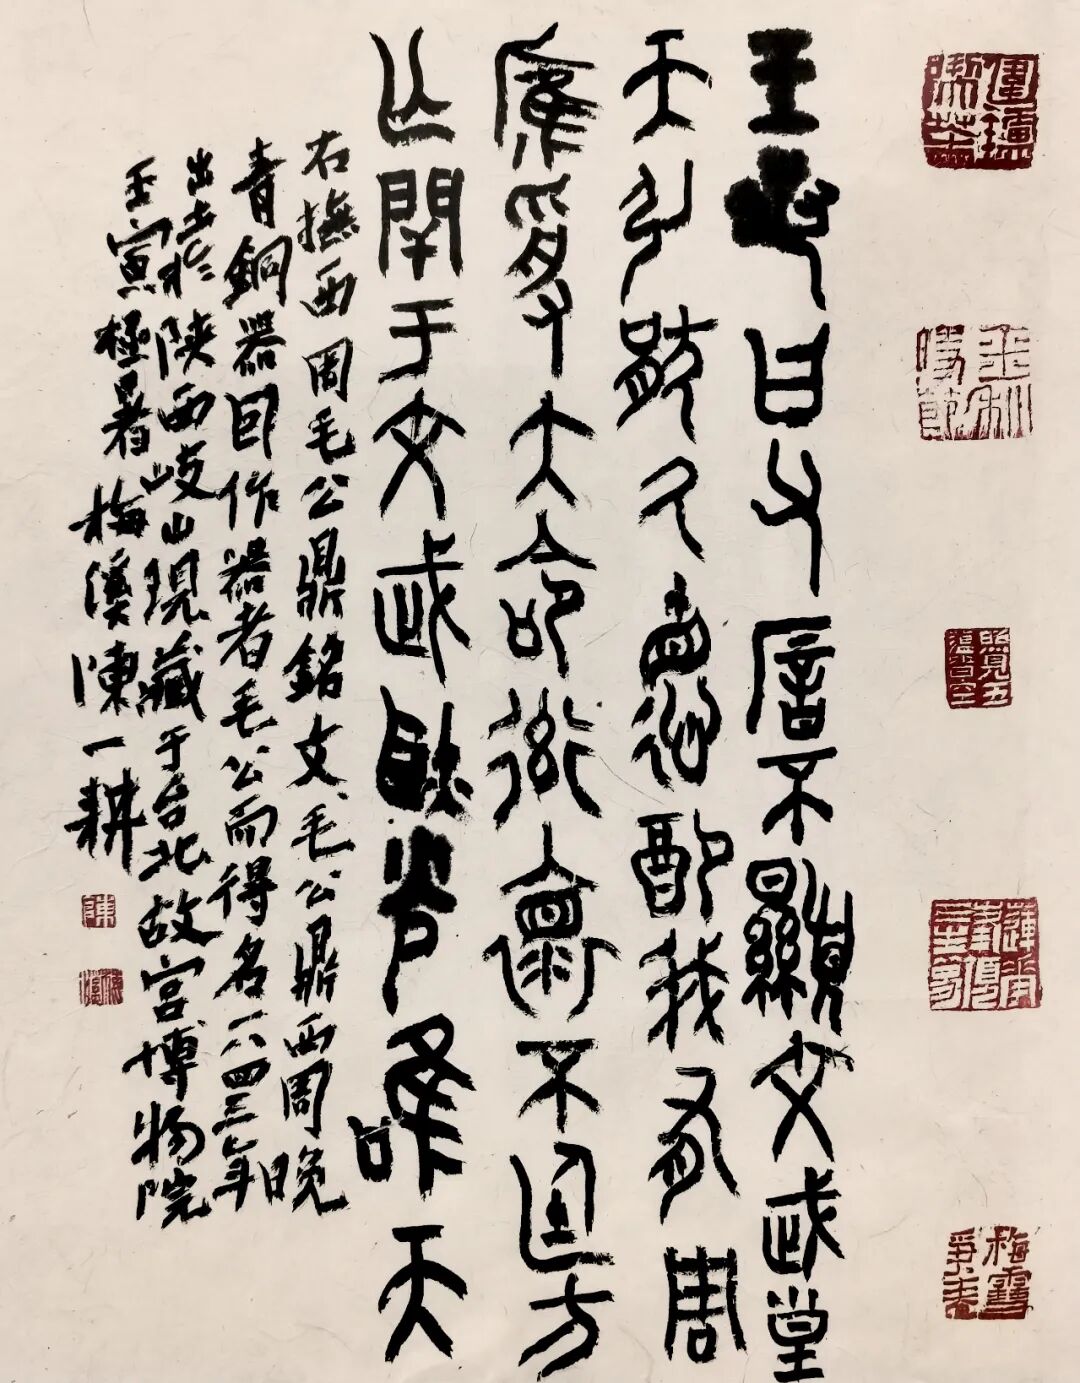 圍爐啜茶
照見五蘊皆空
梅雪爭春
王若曰父厝不顯文武皇
天引猒厥德配我有周
膺受大命率懷不廷方
亡閈于文武耿光唯天
右撫西周毛公鼎銘文毛公鼎西周晚
青銅器因作器者毛公而得名一八四三年
出土於陝西岐山現藏于台北故宮博物院
壬寅極暑梅溪陳一耕